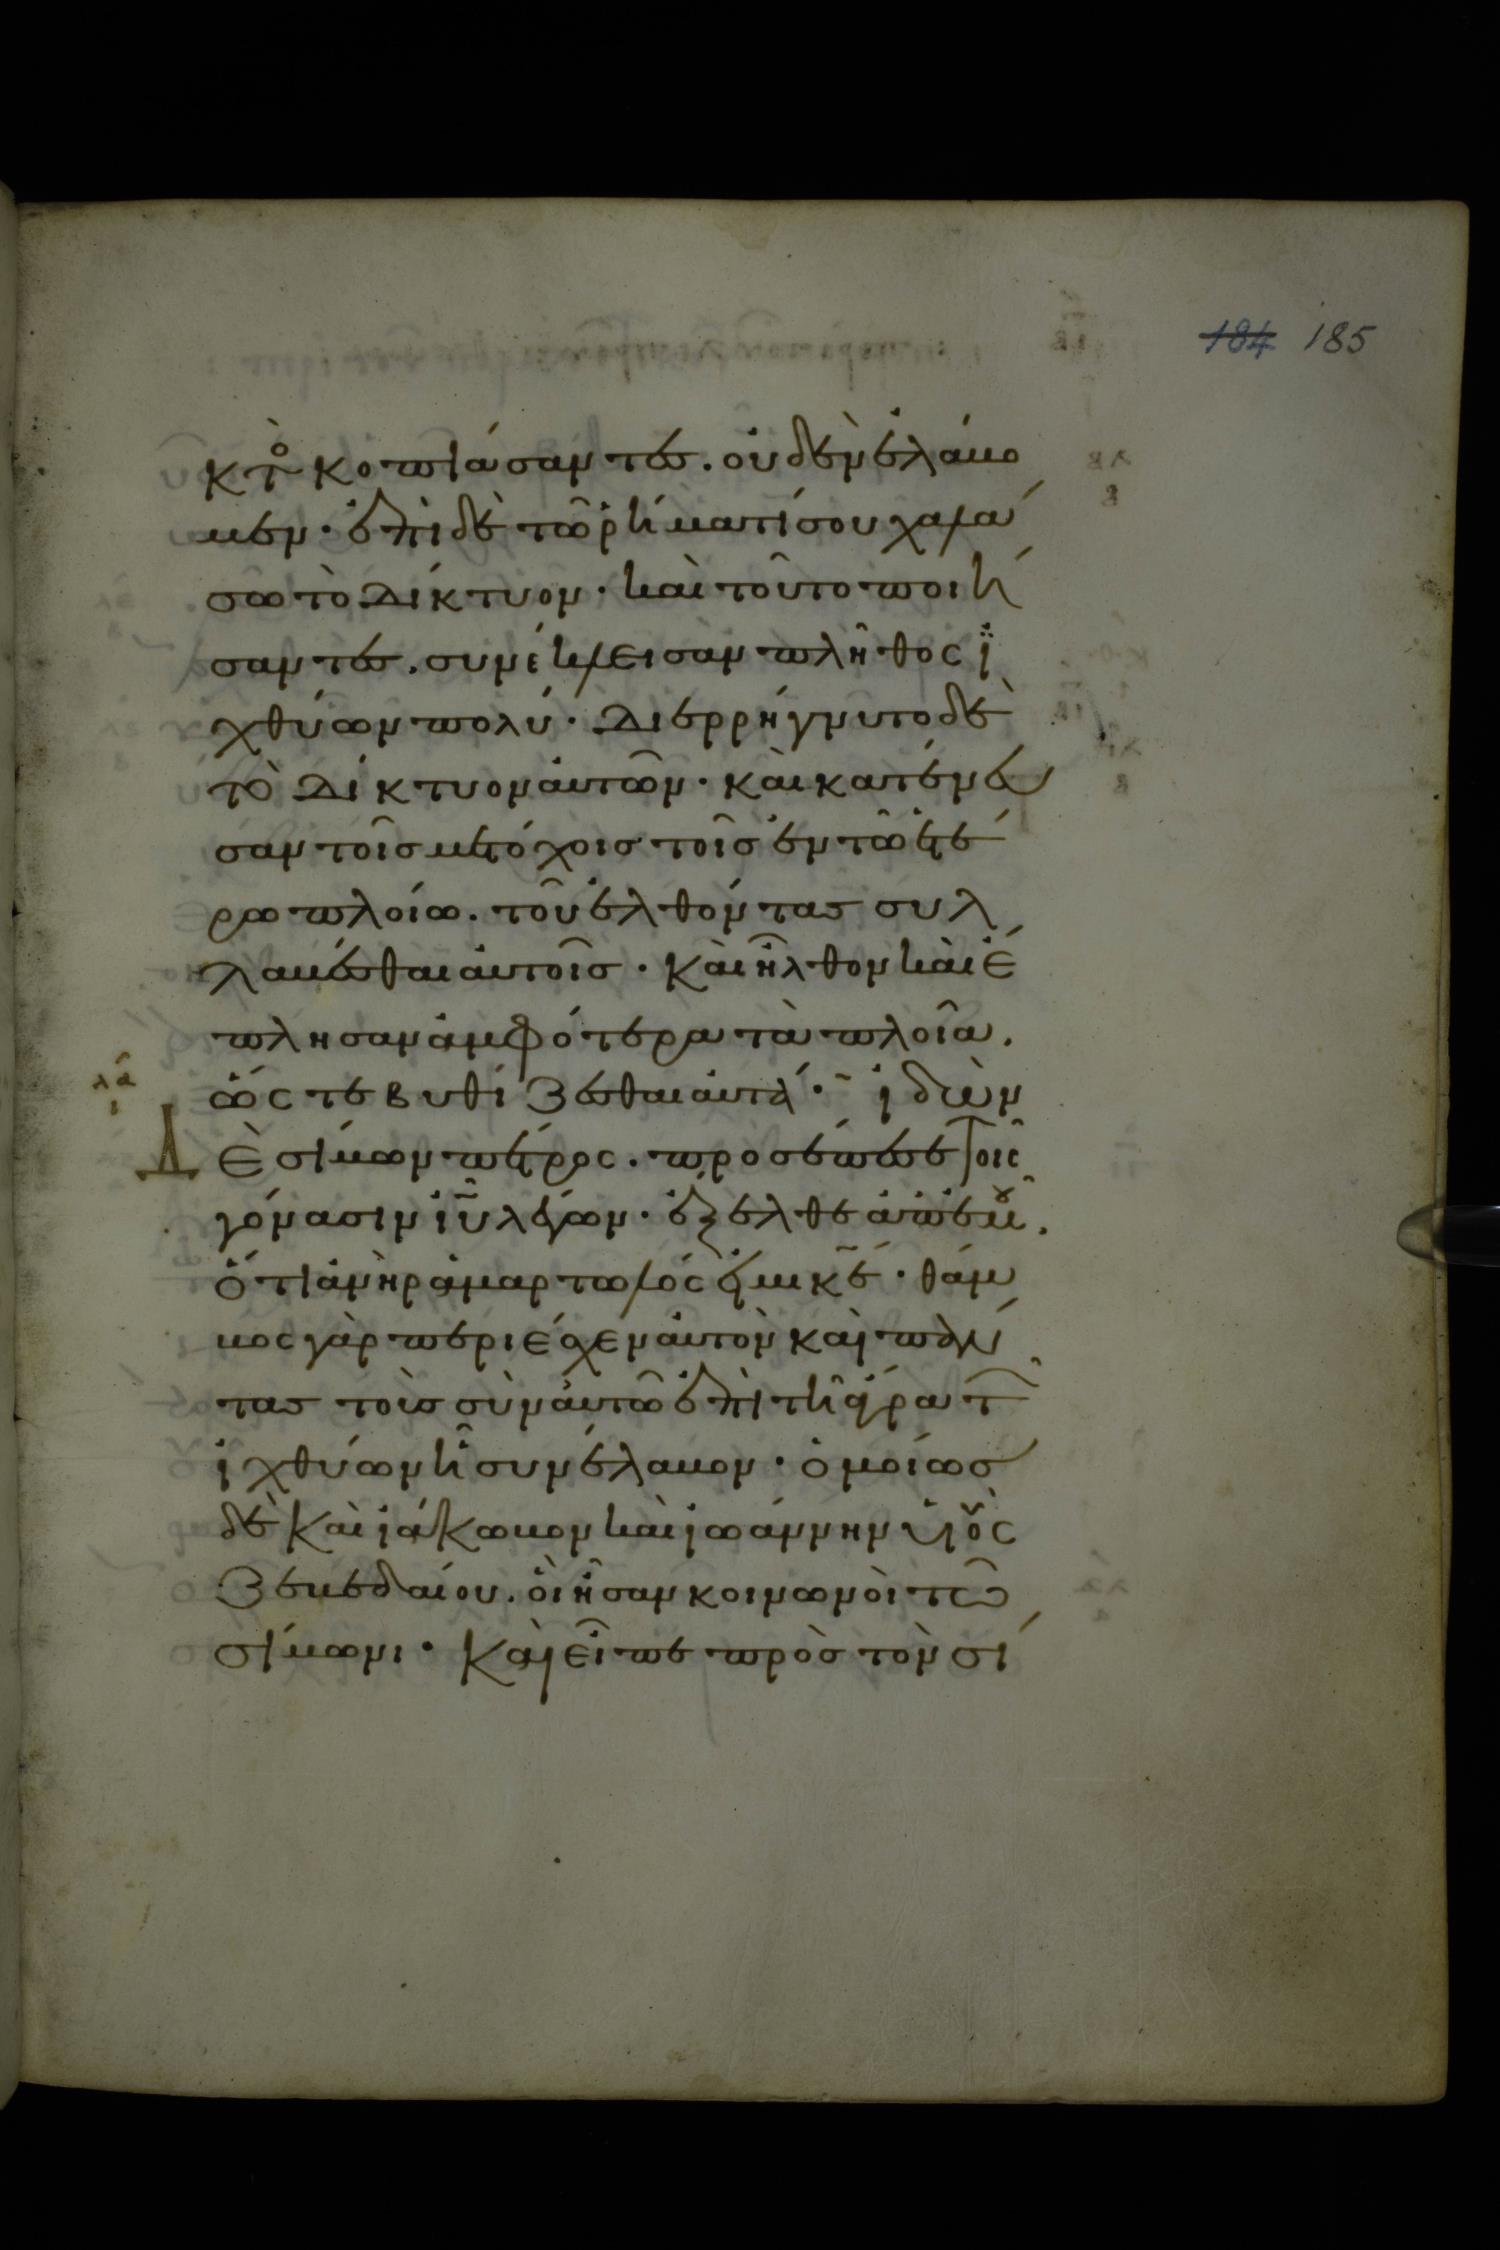 184 185
κτὸ κοπιάσαντες. οὐδὲν ἐλάβο
μεν· ἐπὶ δὲ τῶ ῥήματί σου χαλά
σω τὸ δίκτυον· καὶ τοῦτο ποιή
σαντες. συνέκλεισαν πλῆθος ἰ
χθύων πολύ· διερρήγνυτο δὲ
τὸ δίκτυον αὐτῶν· καὶ κατένευ
σαν τοῖς μετόχοις τοῖς ἐν τῶ ἑτέ
ρω πλοίω. τοῦ ἐλθόντας συλ
λαβέσθαι αὐτοῖς· καὶ ἦλθον καὶ ἔ
πλησαν ἀμφότερα τὰ πλοῖα.
λα ὥστε βυθίζεσθαι αὐτά· ἰδὼν
ι
Δὲ σίμων πέτρος. προσέπεσε τοῖς
γόνασιν ιυ λέγων· ἔξελθε ἀπ' ἐμοῦ.
ὅτι ἀνὴρ ἁμαρτωλός εἰμι κε· θάμ
βος γὰρ περιέσχεν αὐτὸν καὶ πάν
τας τοὺς σὺν αὐτῶ ἐπὶ τῆ ἄγρα τῶν
ἰχθύων ἧ συνέλαβον· ὁμοίως
δὲ καὶ ἰάκωβον καὶ ἰωάννην υἱοὺς
ζεβεδαίου. οἳ ἦσαν κοινωνοὶ τῶ
σίμωνι· καὶ εἶπε πρὸς τὸν σί